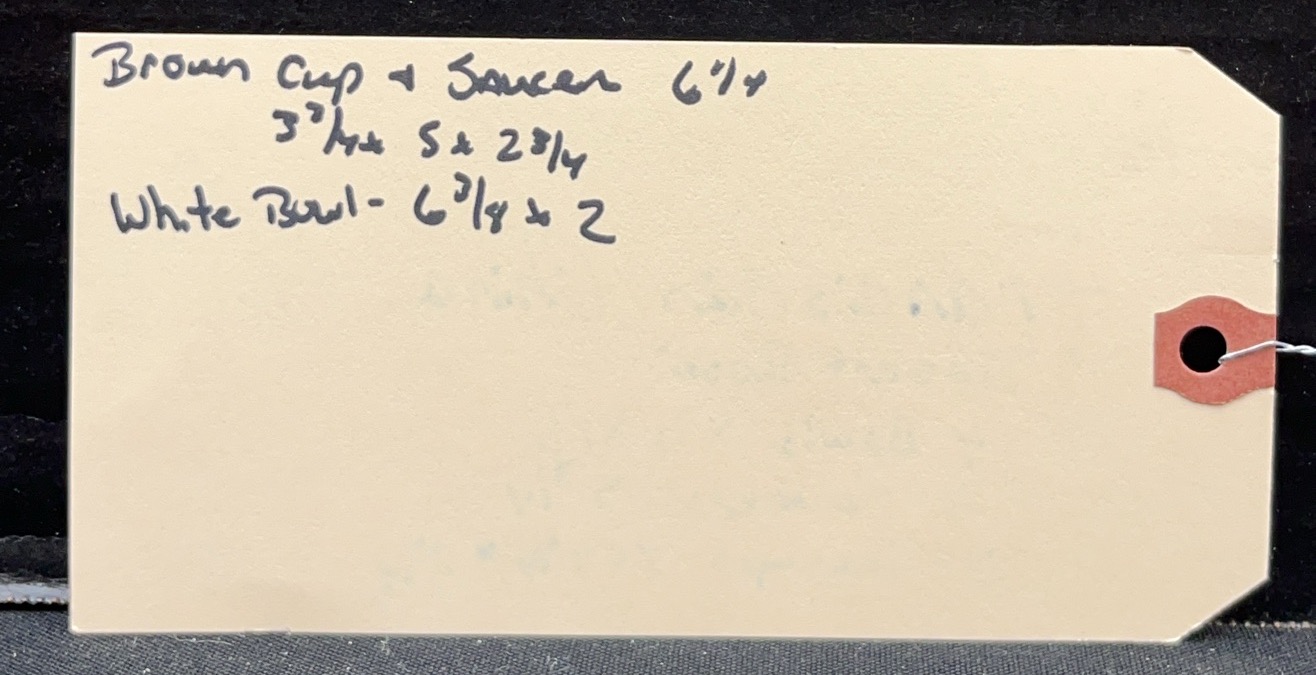 Brown Cup + Saucer 6 1/4
3 3/4 x 5 x 2 3/4
White Bowl - 6 3/8 x 2